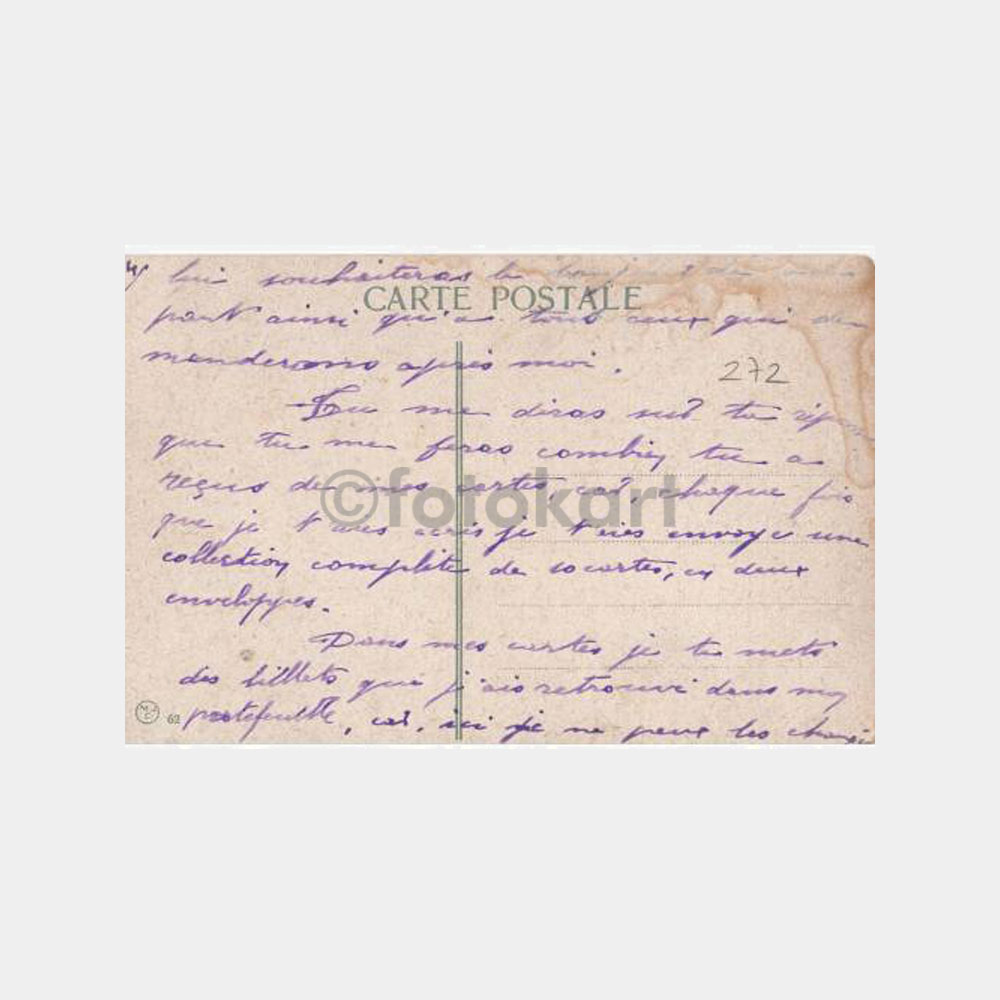 4) lui souhaiteras le bonjour de ma
CARTE POSTALE
part ainsi qu'a tous ceux qui de
manderons apres moi.
272
Tu me diras sur ta repon
que tu me feras combien tu a
reçus de mes cartes, car, chaque fois
©fotokart
que je t'ais ecris je t'ais envoye une
collection complete de 10 cartes, en deux
enveloppes.
Dans mes cartes je te mets
des billets que j'ais retrouvé dans mon
62 portefeuille, car, ici je ne peux les